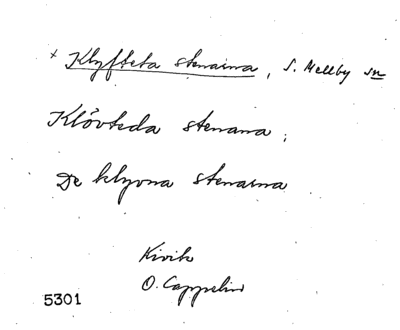 × Klyfteta stenarna, S. Mellby sn
Klövteda stenana;
De klyvna stenarna
Kivik
O. Cappelin
5301